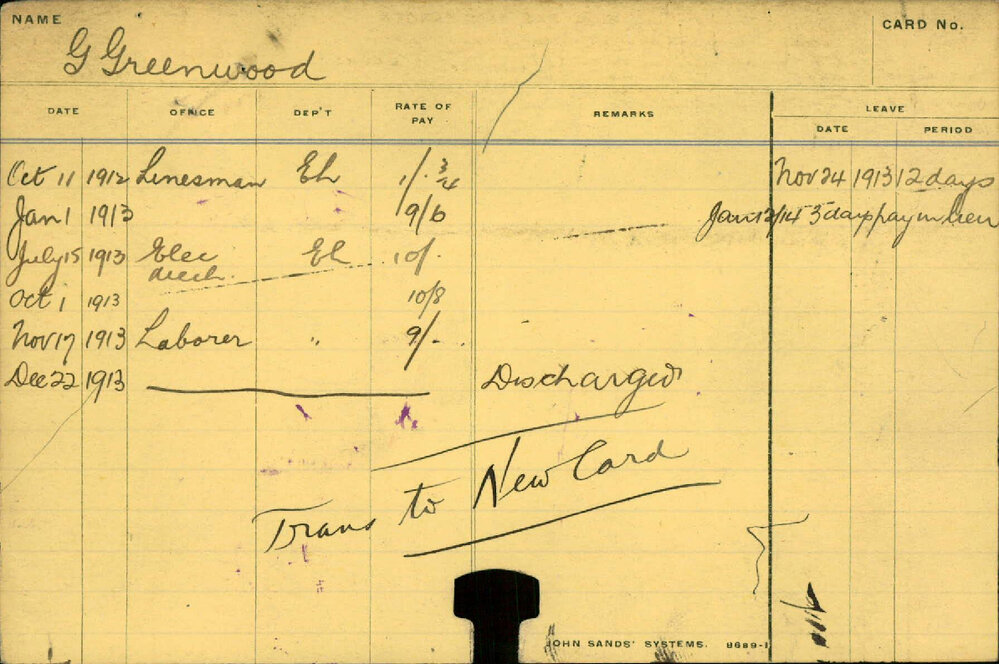 NAME
G Greenwood
CARD No.
DATE OFFICE DEP'T RATE OF PAY REMARKS LEAVE
DATE PERIOD
Oct 11 1912 Linesman El 1/. 3/4 Nov 24 1913 12 days
Jan 1 1913 9/6 Jan 12/14 3 days pay in lieu
July 15 1913 Elec El 10/.
Mech.
Oct 1 1913 10/8
Nov 17 1913 Laborer " 9/.
Dec 22 1913 Discharged
Trans to New Card
JOHN SANDS' SYSTEMS. 8689-1